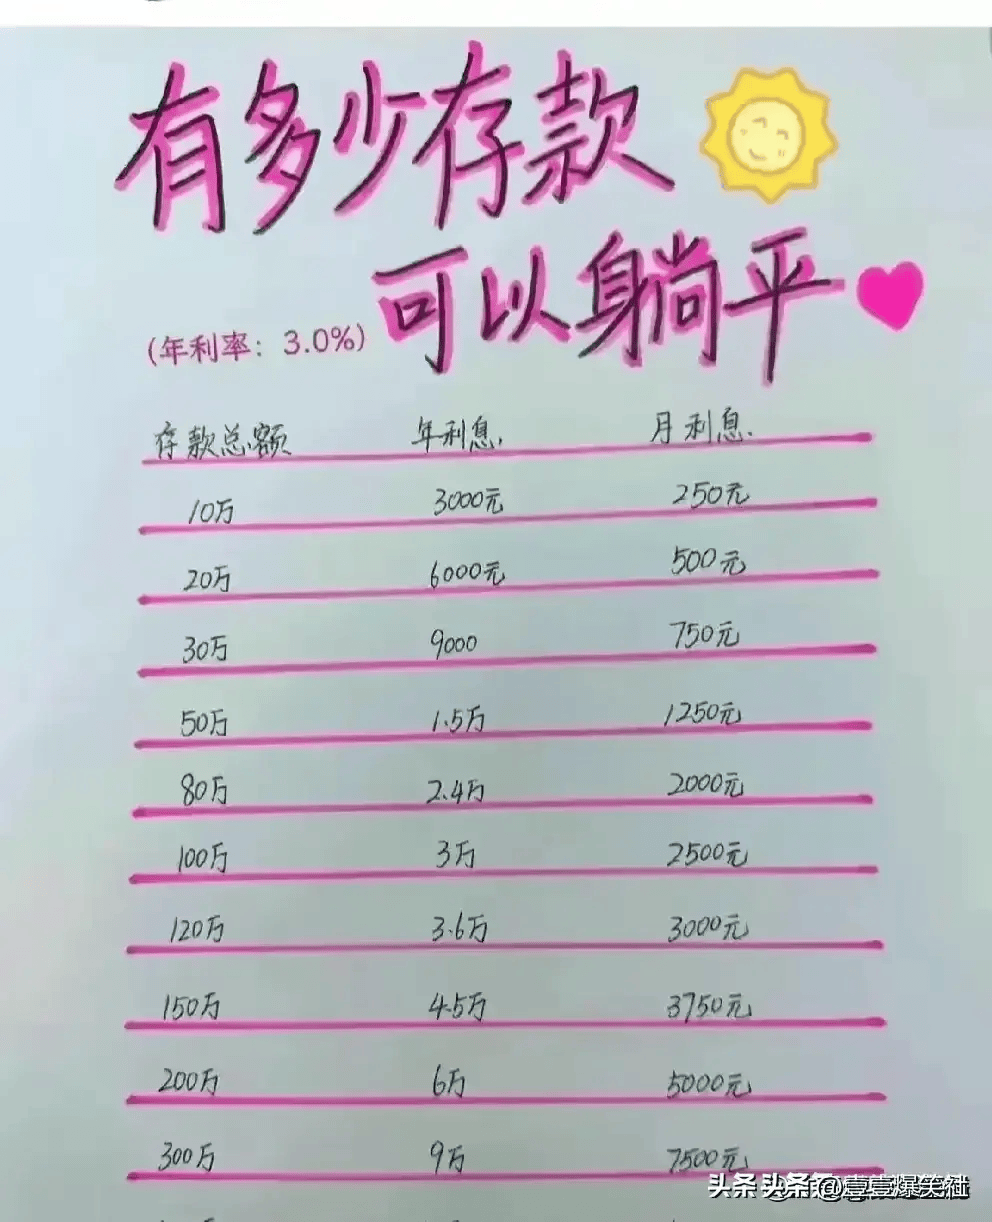 有多少存款
可以躺平
(年利率：3.0%)
存款总额 年利息 月利息
10万 3000元 250元
20万 6000元 500元
30万 9000 750元
50万 1.5万 1250元
80万 2.4万 2000元
100万 3万 2500元
120万 3.6万 3000元
150万 4.5万 3750元
200万 6万 5000元
300万 9万 7500元
头条 @壹壹爆笑社